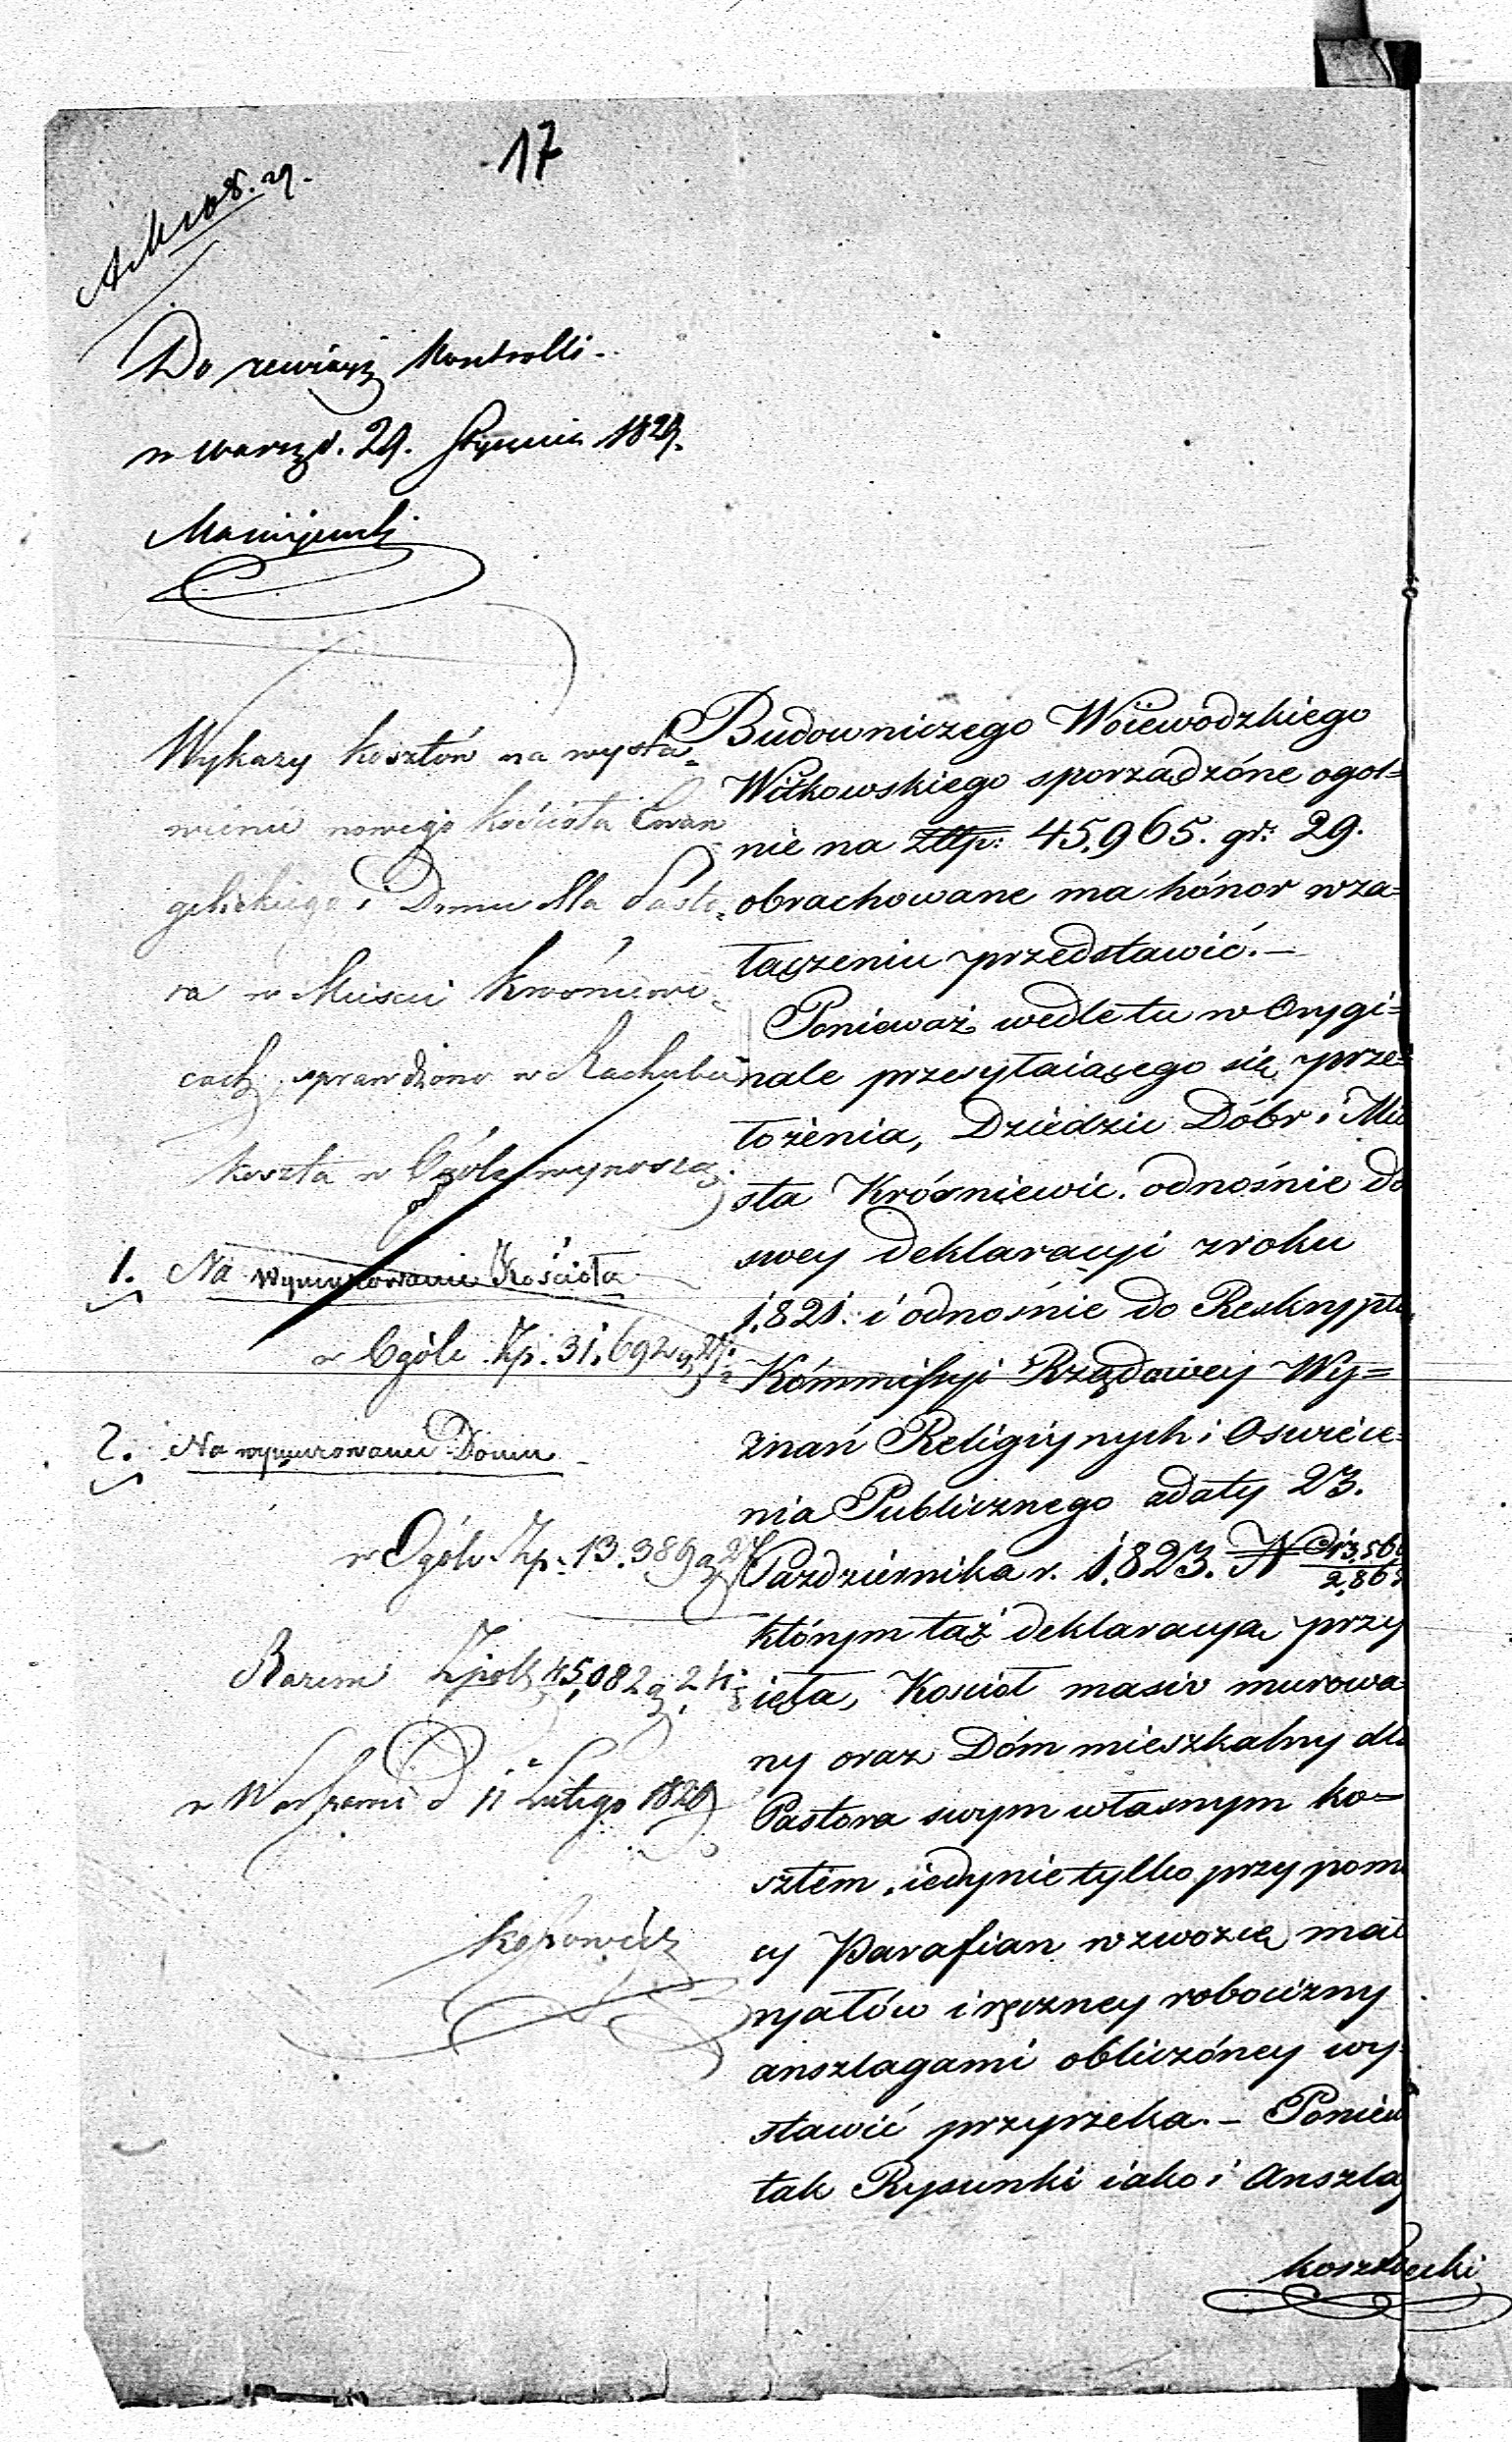 17
Do rewizyi Kontrolli.
w Warsz. d. 29. Stycznia 1829.
Maciejowski
Wykazy kosztów na wysta=
wienie nowego kościoła Ewan
gelickiego i Domu dla Pasto=
ra w Mieście Krośniewi=
cach sprawdzono w Rachubie
koszta w Ogóle wynoszą
1. Na wymurowanie Kościoła
w Ogóle Zp. 31,692 g 27.
2. Na wymurowanie Domu
w Ogóle Zp. 13.389 g 27
Razem Zpols 45,082 g. 24.
w Warszawie d 11 Lutego 1829
Budowniczego Woiewodzkiego
Witkowskiego sporządzóne ogol=
nie na Złtp: 45,965. gr: 29.
obrachowane ma hónor wza=
łączeniu przedstawić.—
Ponieważ wedle tu w Orygi=
nale przesyłaiącego się prze=
łożenia, Dziedzic Dóbr i Mia
sta Króśniewic. odnośnie do
swey deklaracyi z roku
1.821. i odnośnie do Reskryptu
Kómmissyi Rządowey Wy=
znań Religiynych i Oswiece=
nia Publicznego z daty 23.
Pazdziernika r. 1.823. N
którym taż deklaracya przy
ięta, Kosciół masiv murowa
ny oraz Dóm mieszkalny dla
Pastora swym własnym ko=
sztem, iedynie tylko przy pomo
cy Parafian w zwozie mate
ryałów i ręczney robocizny
anszlagami obliczóney wy=
stawić przyrzeka.— Poniew
tak Rysunki iako i Anszlag